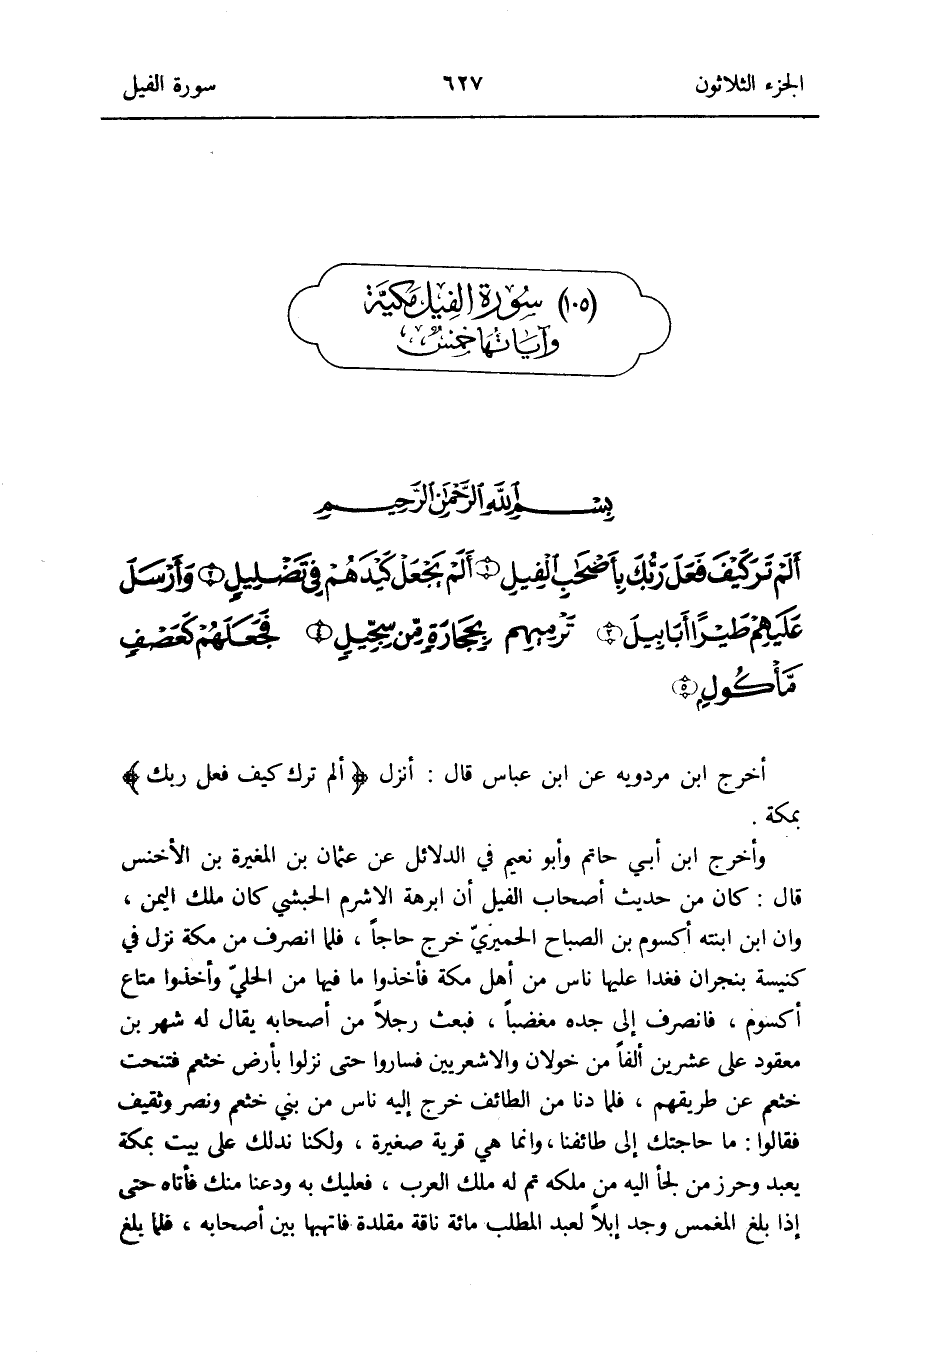 الجزء الثلاثون ٦٢٧ سورة الفيل
(١٠٥) سورة الفيل مكية
وآياتها خمس
بِسْمِ ٱللَّهِ ٱلرَّحْمَٰنِ ٱلرَّحِيمِ
أَلَمْ تَرَ كَيْفَ فَعَلَ رَبُّكَ بِأَصْحَٰبِ ٱلْفِيلِ ۝١ أَلَمْ يَجْعَلْ كَيْدَهُمْ فِي تَضْلِيلٍ ۝٢ وَأَرْسَلَ
عَلَيْهِمْ طَيْرًا أَبَابِيلَ ۝٣ تَرْمِيهِم بِحِجَارَةٍ مِّن سِجِّيلٍ ۝٤ فَجَعَلَهُمْ كَعَصْفٍ
مَّأْكُولٍ ۝٥
أخرج ابن مردويه عن ابن عباس قال : أنزل ﴿ ألم ترك كيف فعل ربك ﴾
بمكة .
وأخرج ابن أبي حاتم وأبو نعيم في الدلائل عن عثمان بن المغيرة بن الأخنس
قال : كان من حديث أصحاب الفيل أن ابرهة الاشرم الحبشي كان ملك اليمن ،
وان ابن ابنته أكسوم بن الصباح الحميريّ خرج حاجاً ، فلما انصرف من مكة نزل في
كنيسة بنجران فغدا عليها ناس من أهل مكة فأخذوا ما فيها من الحليّ وأخذوا متاع
أكسوم ، فانصرف إلى جده مغضباً ، فبعث رجلاً من أصحابه يقال له شهر بن
معقود على عشرين ألفاً من خولان والاشعريين فساروا حتى نزلوا بأرض خثعم فتنحت
خثعم عن طريقهم ، فلما دنا من الطائف خرج إليه ناس من بني خثعم ونصر وثقيف
فقالوا : ما حاجتك إلى طائفنا ، وانما هي قرية صغيرة ، ولكنا ندلك على بيت بمكة
يعبد وحرز من لجأ اليه من ملكه تم له ملك العرب ، فعليك به ودعنا منك فأتاه حتى
إذا بلغ المغمس وجد إبلاً لعبد المطلب مائة ناقة مقلدة فاتهبها بين أصحابه ، فلما يلغ